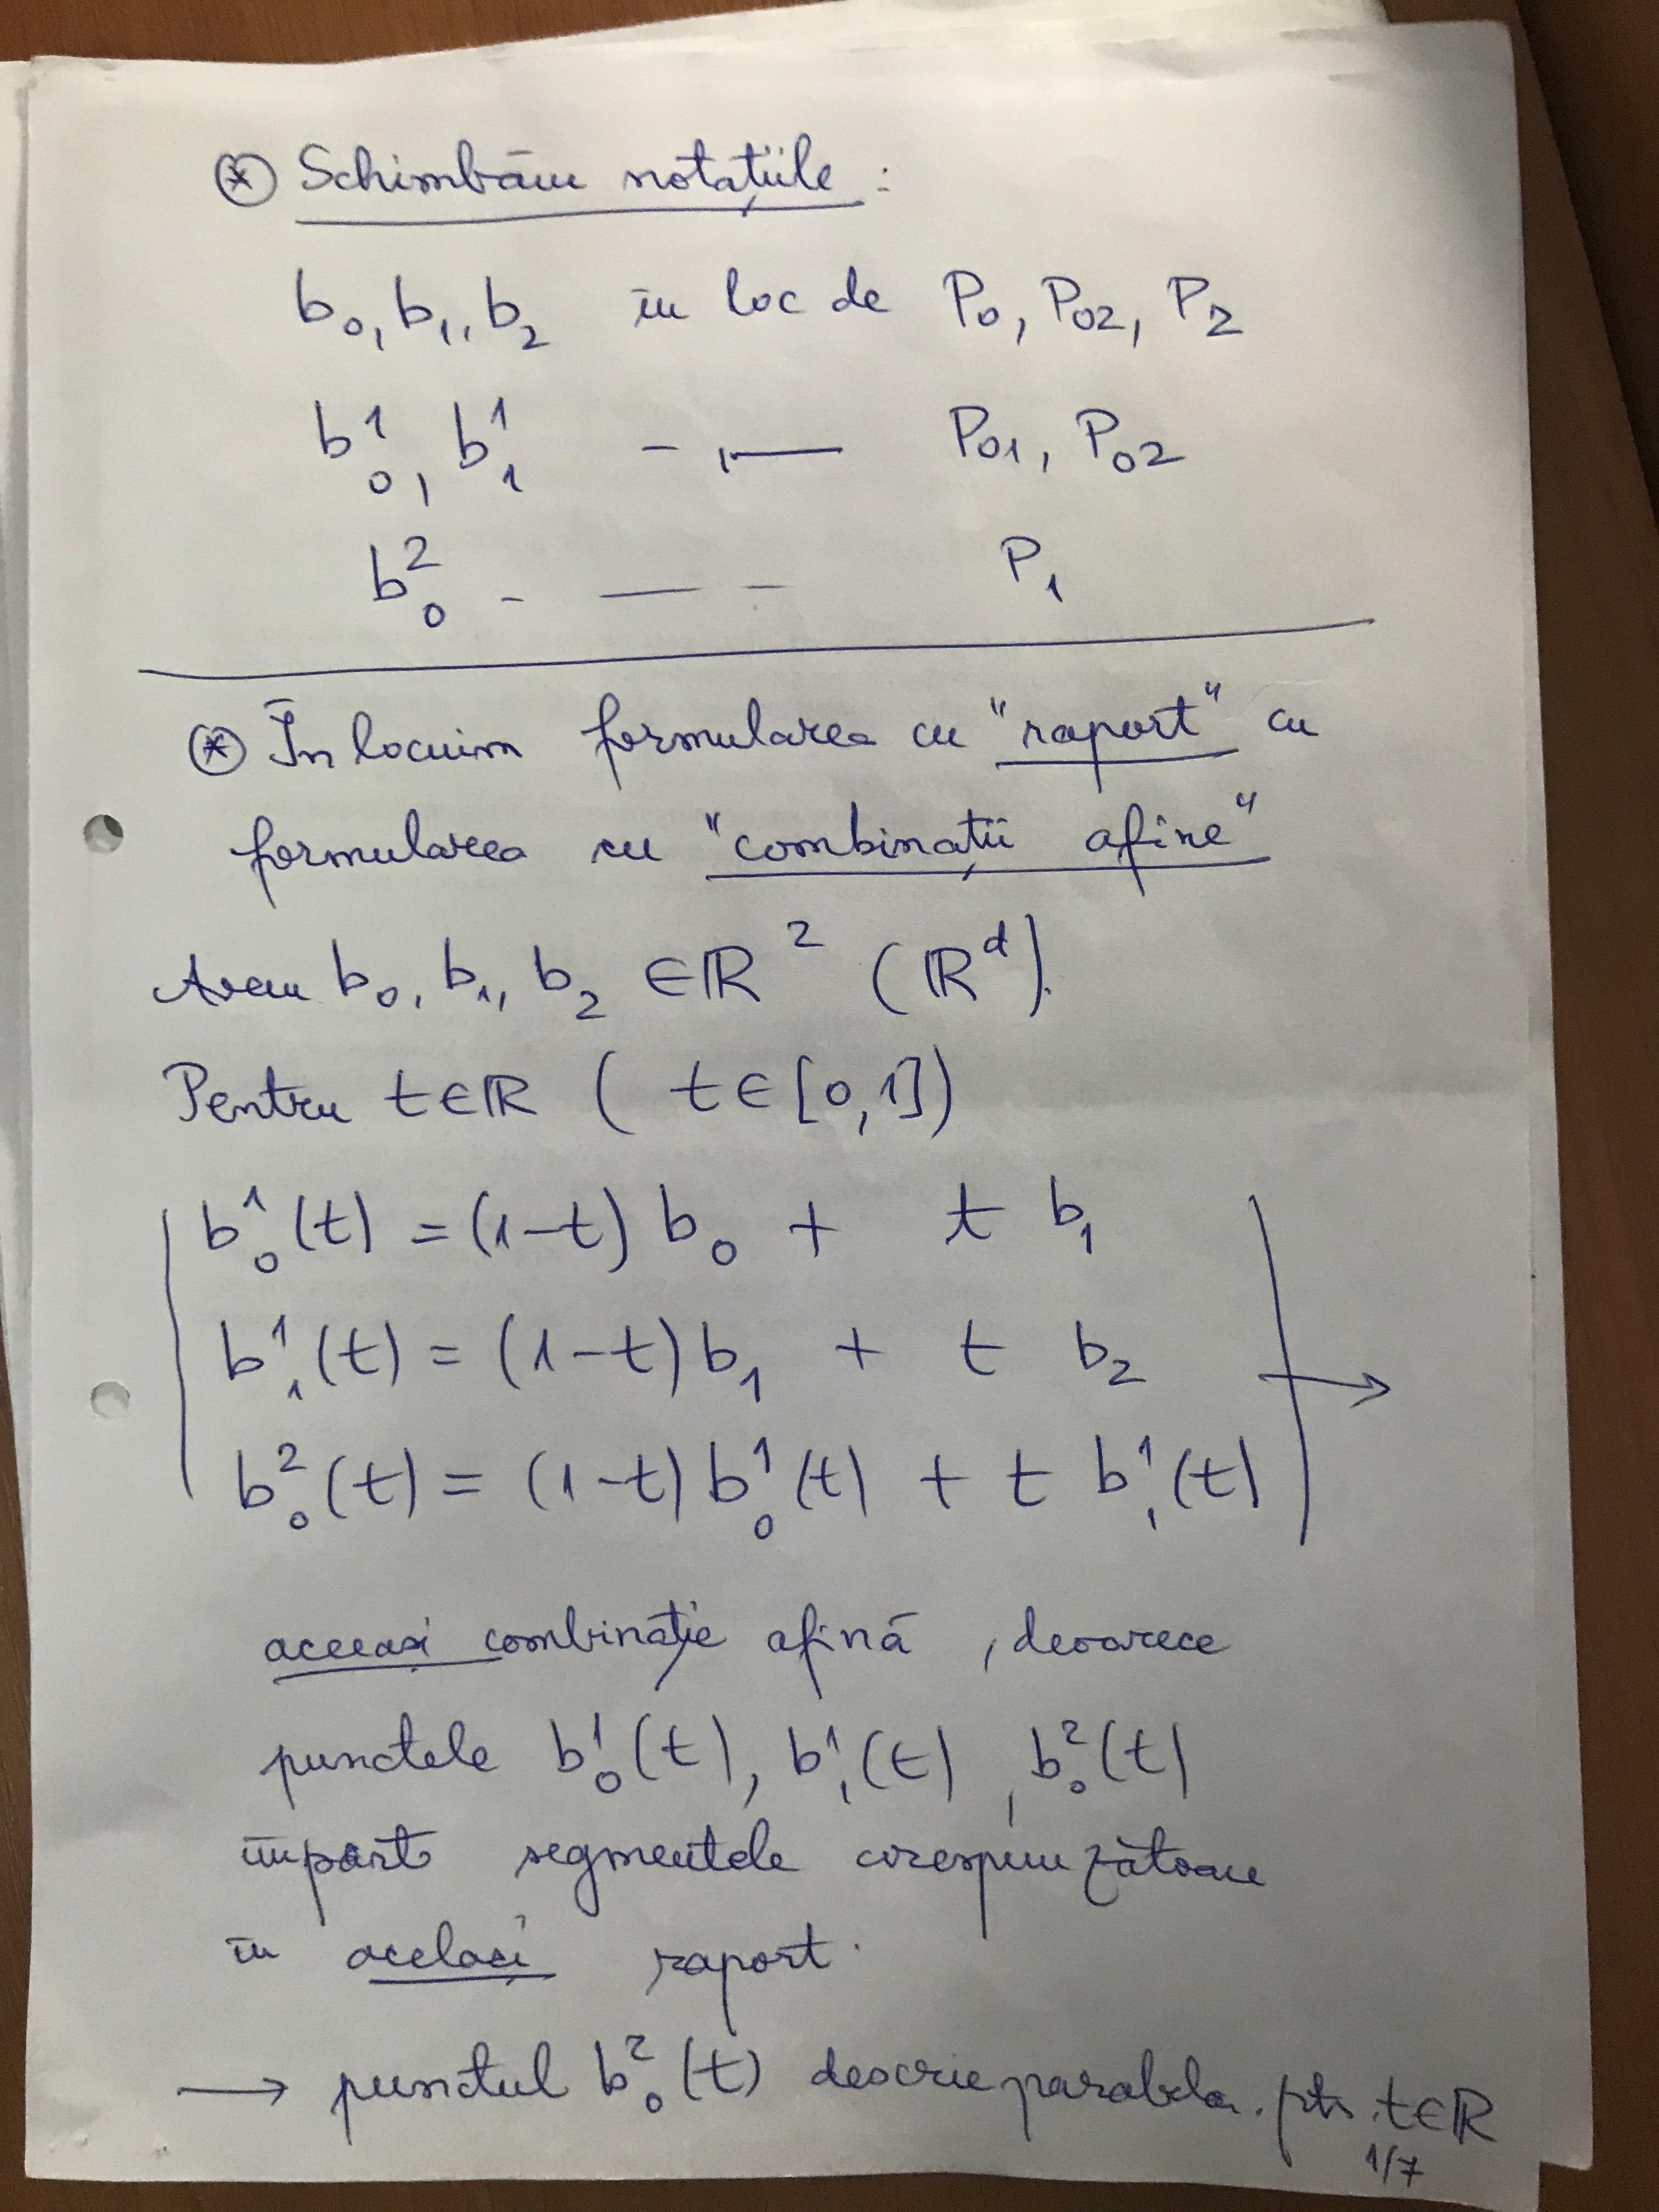 ⊛ Schimbăm notațiile :
b₀, b₁, b₂ în loc de P₀, P₀₂, P₂
b¹₀, b¹₁ – ,,— P₀₁, P₀₂
b²₀ - — - P₁
⊛ Înlocuim formularea cu "raport" cu
formularea cu "combinații afine"
Avem b₀, b₁, b₂ ∈ ℝ² (ℝᵈ).
Pentru t∈ℝ ( t∈[0,1])
b¹₀(t) = (1-t) b₀ + t b₁
b¹₁(t) = (1-t) b₁ + t b₂
b²₀(t) = (1-t) b¹₀(t) + t b¹₁(t) →
aceeași combinație afină, deoarece
punctele b¹₀(t), b¹₁(t), b²₀(t)
împart segmentele corespunzătoare
în același raport.
→ punctul b²₀(t) descrie parabola. ptr. t∈ℝ
1/7